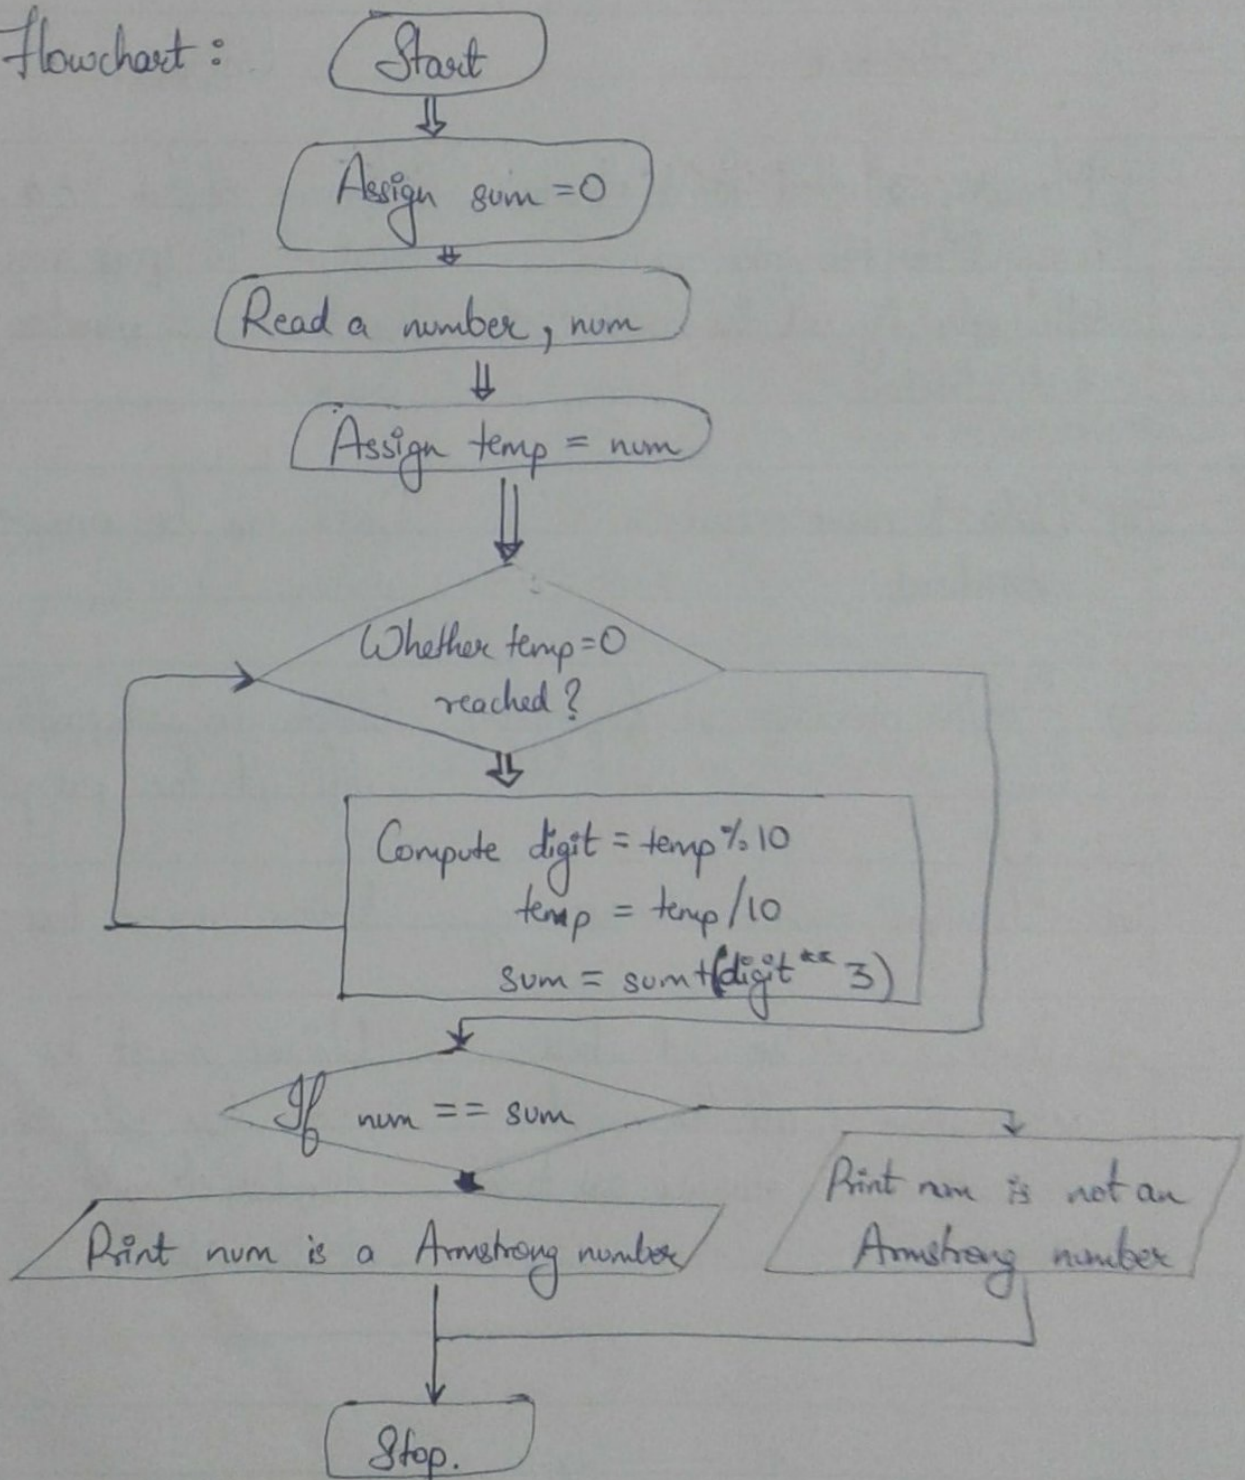 Flowchart :
Start
Assign sum = 0
Read a number, num
Assign temp = num
Whether temp=0
reached?
Compute digit = temp % 10
temp = temp/10
sum = sum+(digit ** 3)
If num == sum
Print num is not an
Armstrong number
Print num is a Armstrong number
Stop.